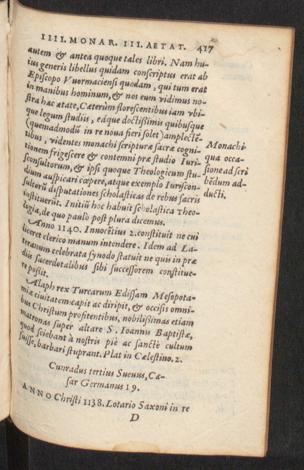 IIII. MONAR. III. AETAT. 417
autem & antea quoque tales libri. Nam hu-
ius generis libellus quidam conscriptus erat ab
Episcopo Vuormaciensi quodam, qui tum erat
in manibus hominum, & nos eum vidimus no-
stra hac ætate. Cæterùm florescentibus iam vbi-
que legum studiis, edque doctissimis quibusque
(quemadmodū in re noua fieri solet) amplectē-
tibus, videntes monachi scripturæ sacræ cogni-
tionem frigescere & contemni præ studio Iuri-
sconsultorum, & ipsi quoque Theologicum stu-
dium auspicari cœpere, atque exemplo Iurifcon-
sultorū disputationes scholasticas de rebus sacris
instituerūt. Initiū hoc habuit scholastica Theo-
logia, de quo paulò post plura dicemus.
Monachi
qua occa-
sione ad scri
bēdum ad-
ducti.
Anno 1140. Innocētius 2. constituit ne cui
liceret clerico manum intendere. Idem ad La-
teranum celebrata synodo statuit ne quis in præ
diis sacerdotalibus sibi successorem constitue-
re possit.
Alaph rex Turcarum Edissam Mesopota-
miæ ciuitatem capit ac diripit, & occisis omni-
bus Christum profitentibus, nobilissimas etiam
matronas super altare S. Ioannis Baptistæ,
quod sciebant à nostris piè ac sanctè cultum
fuisse, barbari stuprant. Plat in Cælestino. 2.
Cunradus tertius Sueuus, Cæ-
sar Germanus 19.
ANNO Christi 1138. Lotario Saxoni in re
D